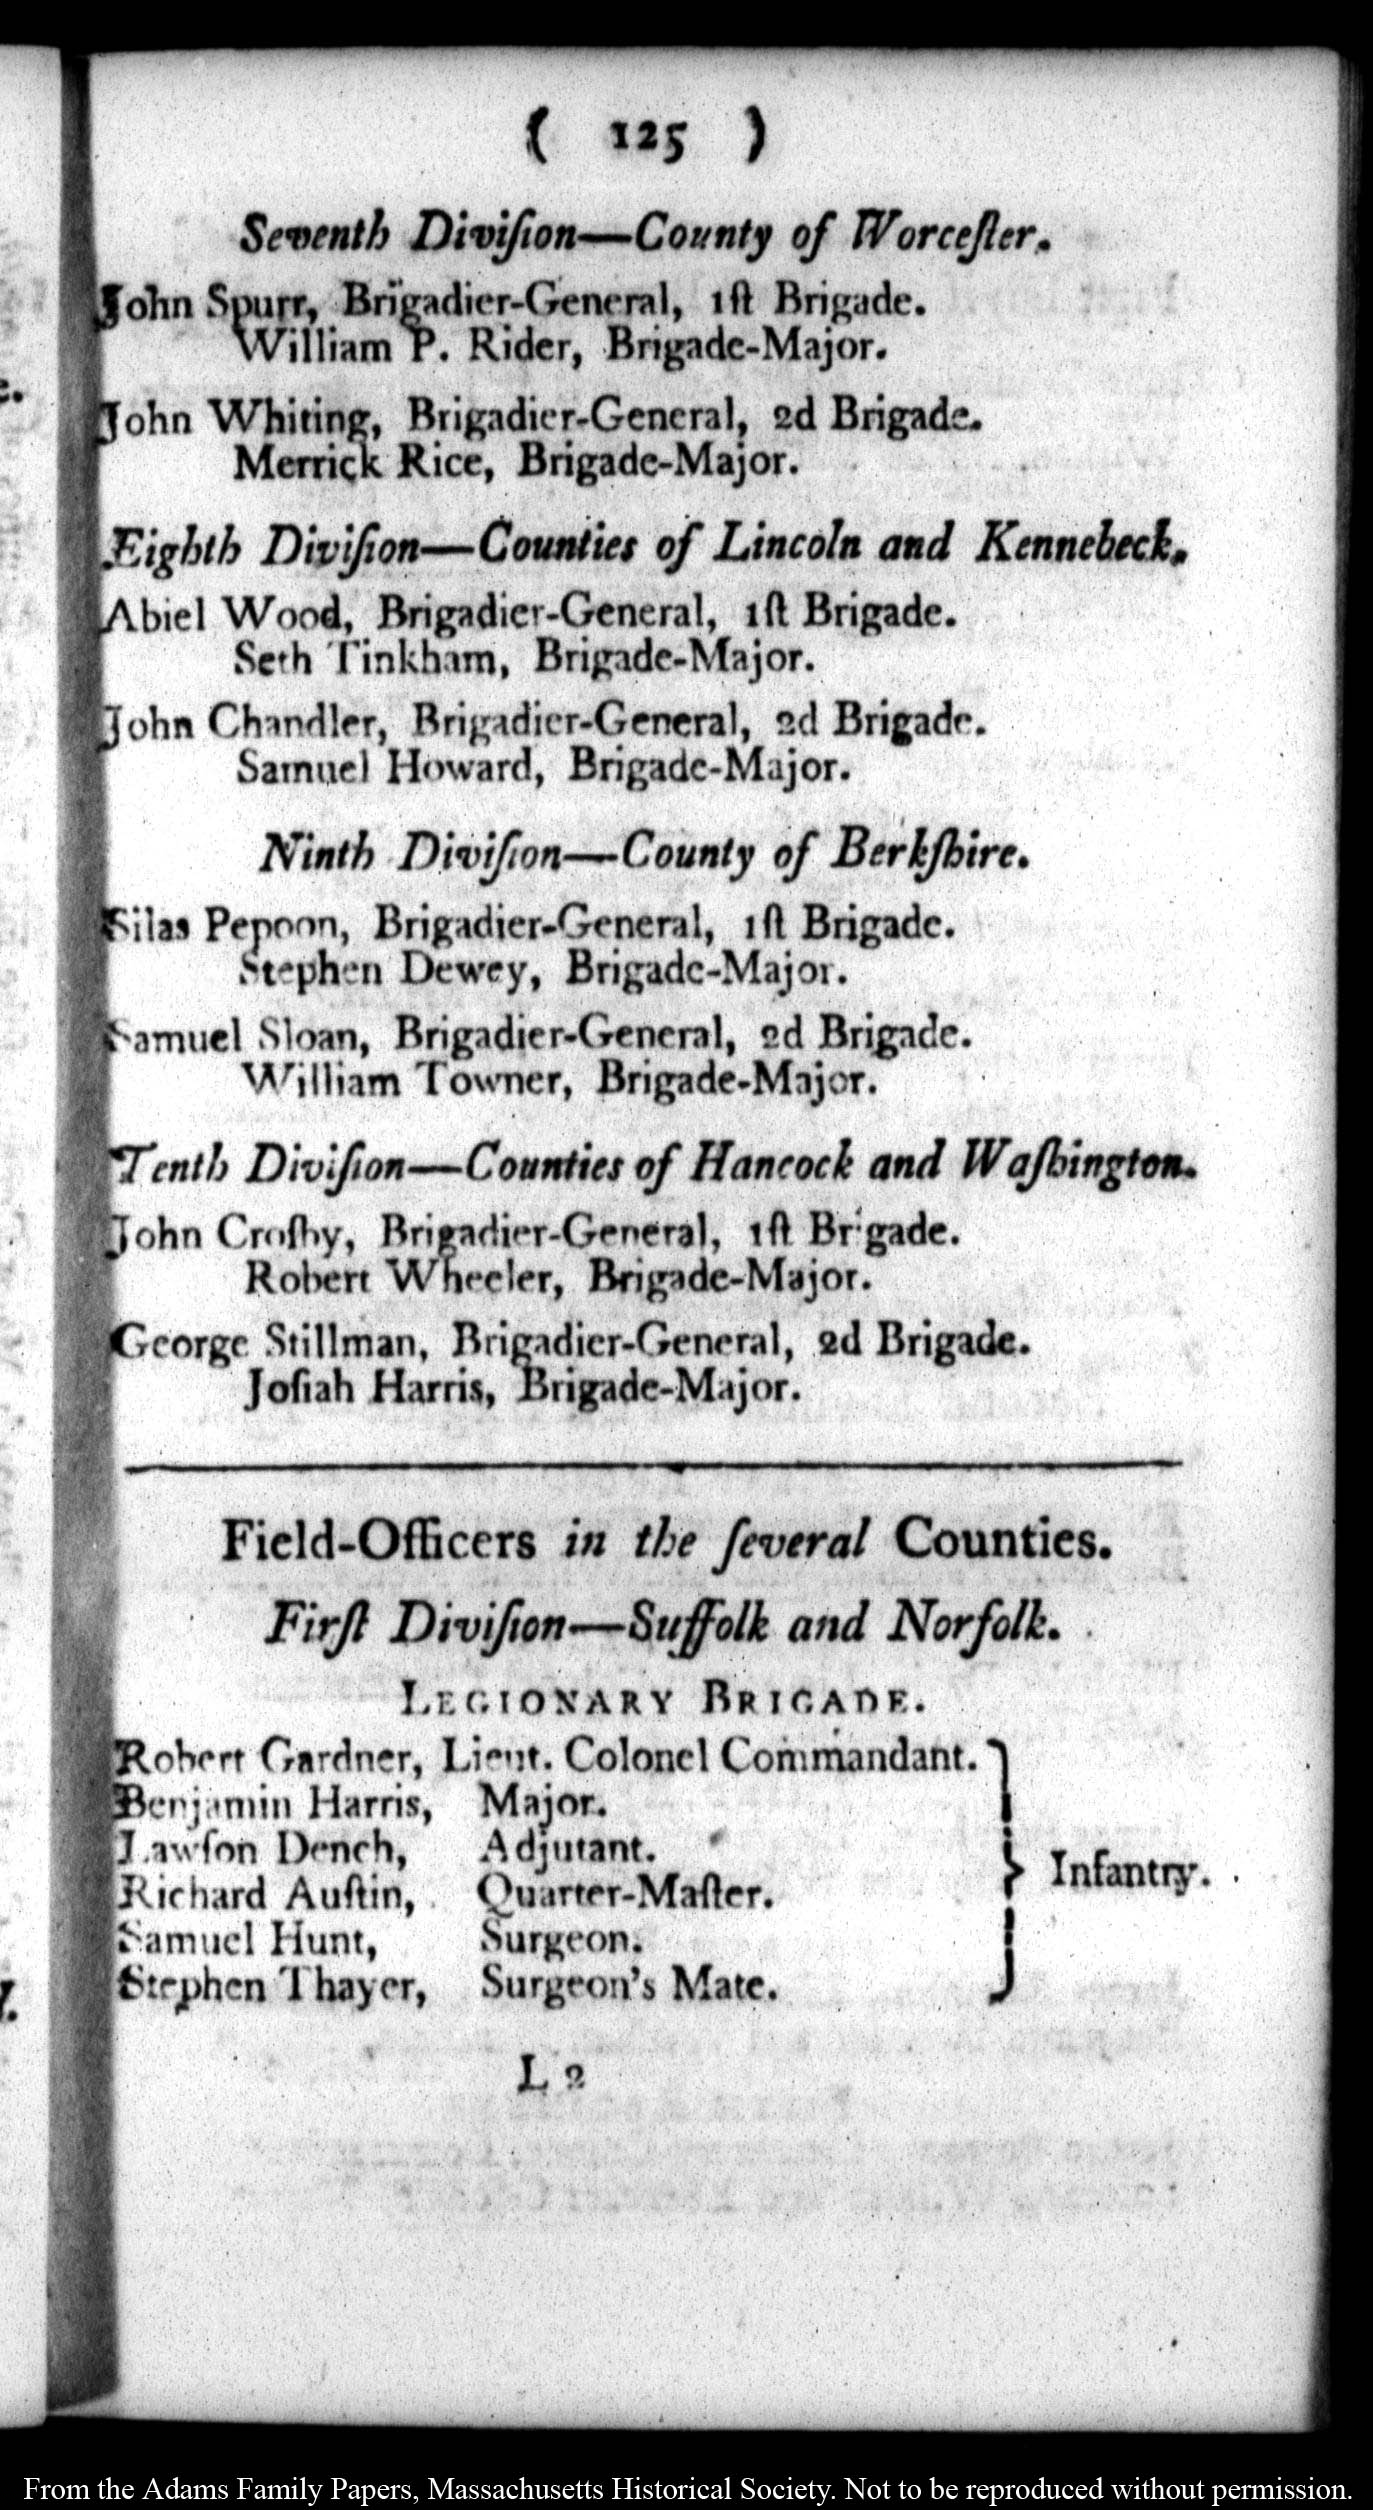 ( 125 )
Seventh Diviſion—County of Worceſter.
John Spurr, Brigadier-General, 1ſt Brigade.
William P. Rider, Brigade-Major.
John Whiting, Brigadier-General, 2d Brigade.
Merrick Rice, Brigade-Major.
Eighth Diviſion—Counties of Lincoln and Kennebeck.
Abiel Wood, Brigadier-General, 1ſt Brigade.
Seth Tinkham, Brigade-Major.
John Chandler, Brigadier-General, 2d Brigade.
Samuel Howard, Brigade-Major.
Ninth Diviſion—County of Berkſhire.
Silas Pepoon, Brigadier-General, 1ſt Brigade.
Stephen Dewey, Brigade-Major.
Samuel Sloan, Brigadier-General, 2d Brigade.
William Towner, Brigade-Major.
Tenth Diviſion—Counties of Hancock and Waſhington.
John Croſby, Brigadier-General, 1ſt Brigade.
Robert Wheeler, Brigade-Major.
George Stillman, Brigadier-General, 2d Brigade.
Joſiah Harris, Brigade-Major.
Field-Officers in the ſeveral Counties.
Firſt Diviſion—Suffolk and Norfolk.
LEGIONARY BRIGADE.
Robert Gardner, Lieut. Colonel Commandant.
Benjamin Harris, Major.
Lawſon Dench, Adjutant.
Richard Auſtin, Quarter-Maſter.
Samuel Hunt, Surgeon.
Stephen Thayer, Surgeon's Mate.
Infantry.
L 2
From the Adams Family Papers, Massachusetts Historical Society. Not to be reproduced without permission.